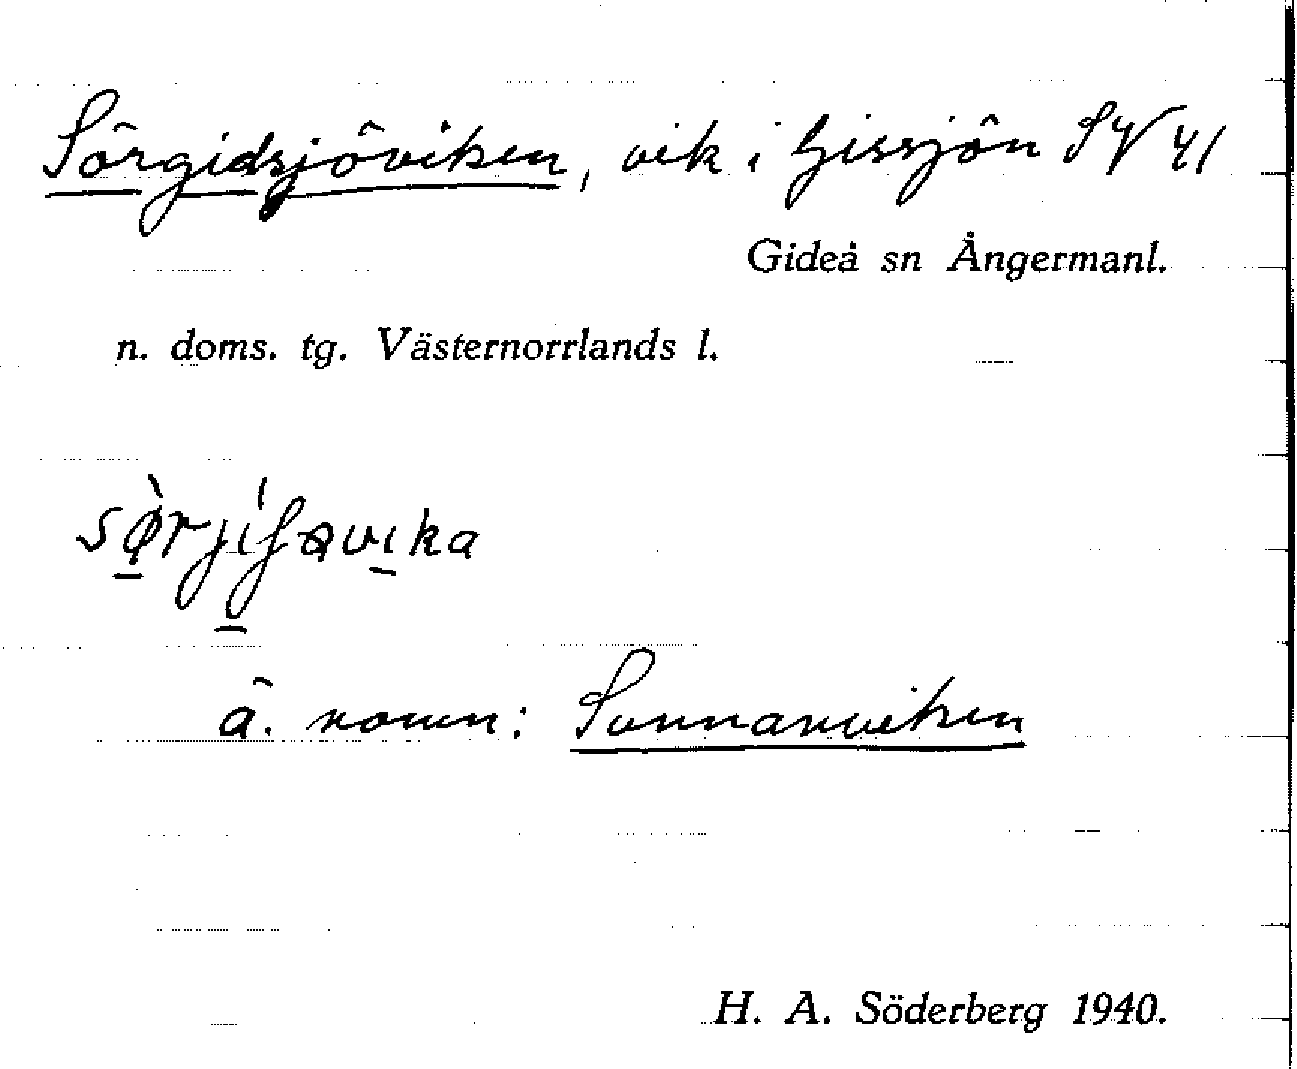 Sörgidsjöviken, vik i Gissjön SV 41
Gideå sn Ångermanl.
n. doms. tg. Västernorrlands l.
ä. namn: Sunnanviken
H. A. Söderberg 1940.